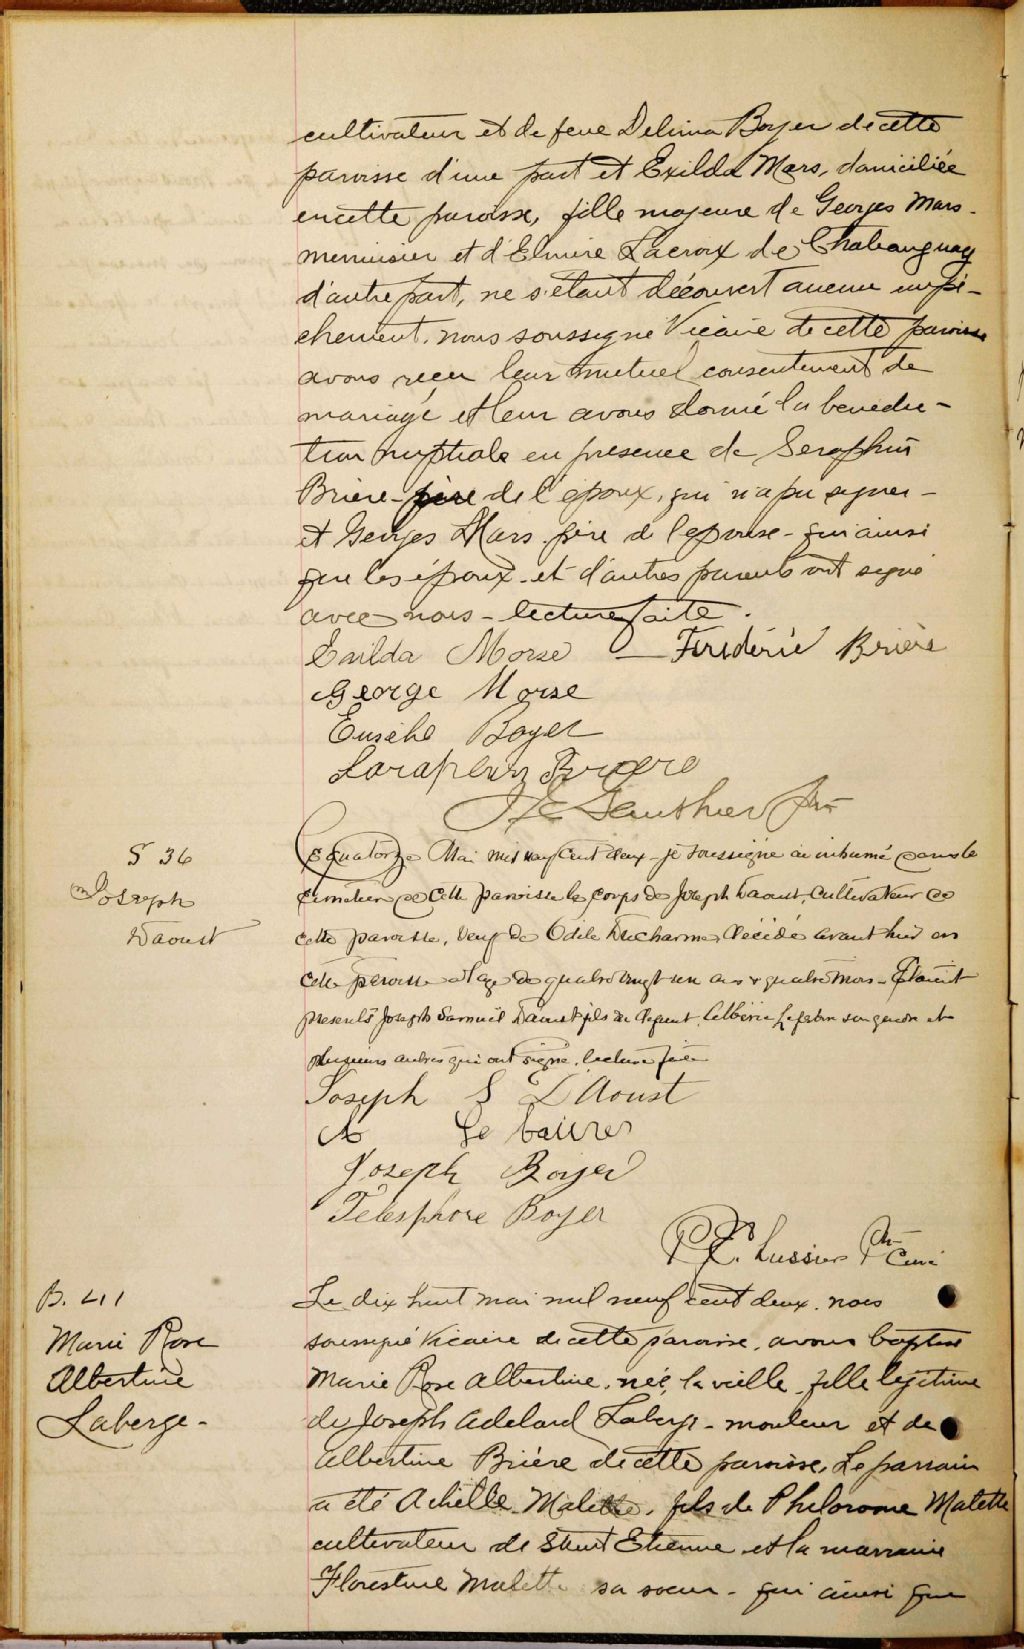 cultivateur et de feue Delima Boyer de cette
paroisse d'une part et Exilda Mars, domiciliée
en cette paroisse, fille majeure de Georges Mars
menuisier et d'Elmire Lacroix de Chateauguay
d'autre part, ne s'étant découvert aucun empê-
chement, nous soussigné Vicaire de cette paroisse
avons reçu leur mutuel consentement de
mariage et leur avons donné la bénédic-
tion nuptiale en presence de Seraphin
Brière père de l'époux, qui n'a pu signer
et Georges Mars père de l'epouse - qui ainsi
que les époux et d'autres parents ont signé
avec nous - lecture faite.
Exilda Morse — Frédéric Brière
George Morse
Eusèbe Boyer
Sarapein Briere
J E Gauthier ptre
S 36
Joseph
Daoust
Le quatorze Mai mil neuf cent deux - je soussigné ai inhumé dans le
cimetière de cette paroisse le corps de Joseph Daoust, cultivateur de
cette paroisse, veuf de Odile Ducharme, décédé avant hier en
cette paroisse a l'age de quatre vingt un ans & quatre mois - Etaient
presents Joseph Samuel Daoust fils du defunt, Lefebvre son gendre et
plusieurs autres qui ont signé, lecture faite
Joseph S D'Aoust
Joseph Boyer
Telesphore Boyer
P. E. Lussier Ptre Curé
B. 41
Marie Rose
Albertine
Laberge -
Le dix huit mai mil neuf cent deux, nous
soussigné Vicaire de cette paroisse, avons baptisé
Marie Rose Albertine, née la vielle, fille légitime
de Joseph Adelard Laberge - mouleur et de
Albertine Brière de cette paroisse, Le parrain
a été Achille Malette, fils de Philorome Malette
cultivateur de Saint Etienne et la marraine
Florestine Malette sa soeur - qui ainsi que